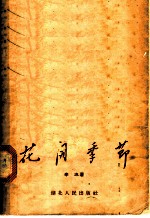 花開季節
湖北人民出版社